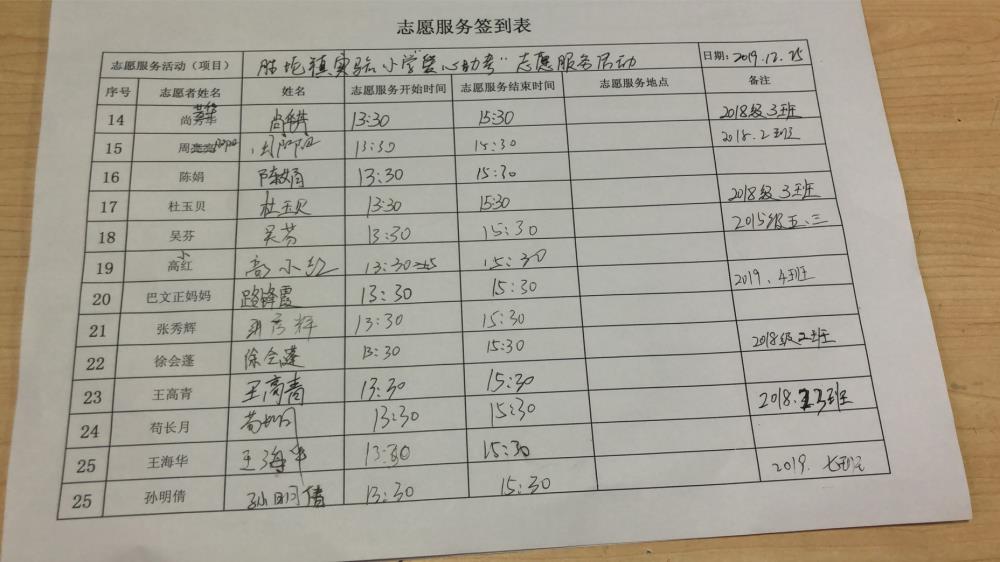 志愿服务签到表
志愿服务活动（项目） 胜坨镇实验小学爱心助考"志愿服务活动 日期：2019.12.25
序号 志愿者姓名 姓名 志愿服务开始时间 志愿服务结束时间 志愿服务地点 备注
14 尚 13:30 15:30 2018级3班
15 周 周阳阳 13:30 15:30 2018.2班
16 陈娟 陈娟 13:30 15:30
17 杜玉贝 杜玉贝 13:30 15:30 2018级3班
18 吴芬 吴芬 13:30 15:30 2015级五.三
19 高小红 高小红 13:30 15:30
20 巴文正妈妈 路锋霞 13:30 15:30 2019.4班
21 张秀辉 张秀辉 13:30 15:30
22 徐会蓬 徐会蓬 13:30 15:30 2018级2班
23 王高青 王高青 13:30 15:30 2018.3班
24 苟长月 13:30 15:30
25 王海华 王海华 13:30 15:30 2019.七班
25 孙明倩 孙明倩 13:30 15:30